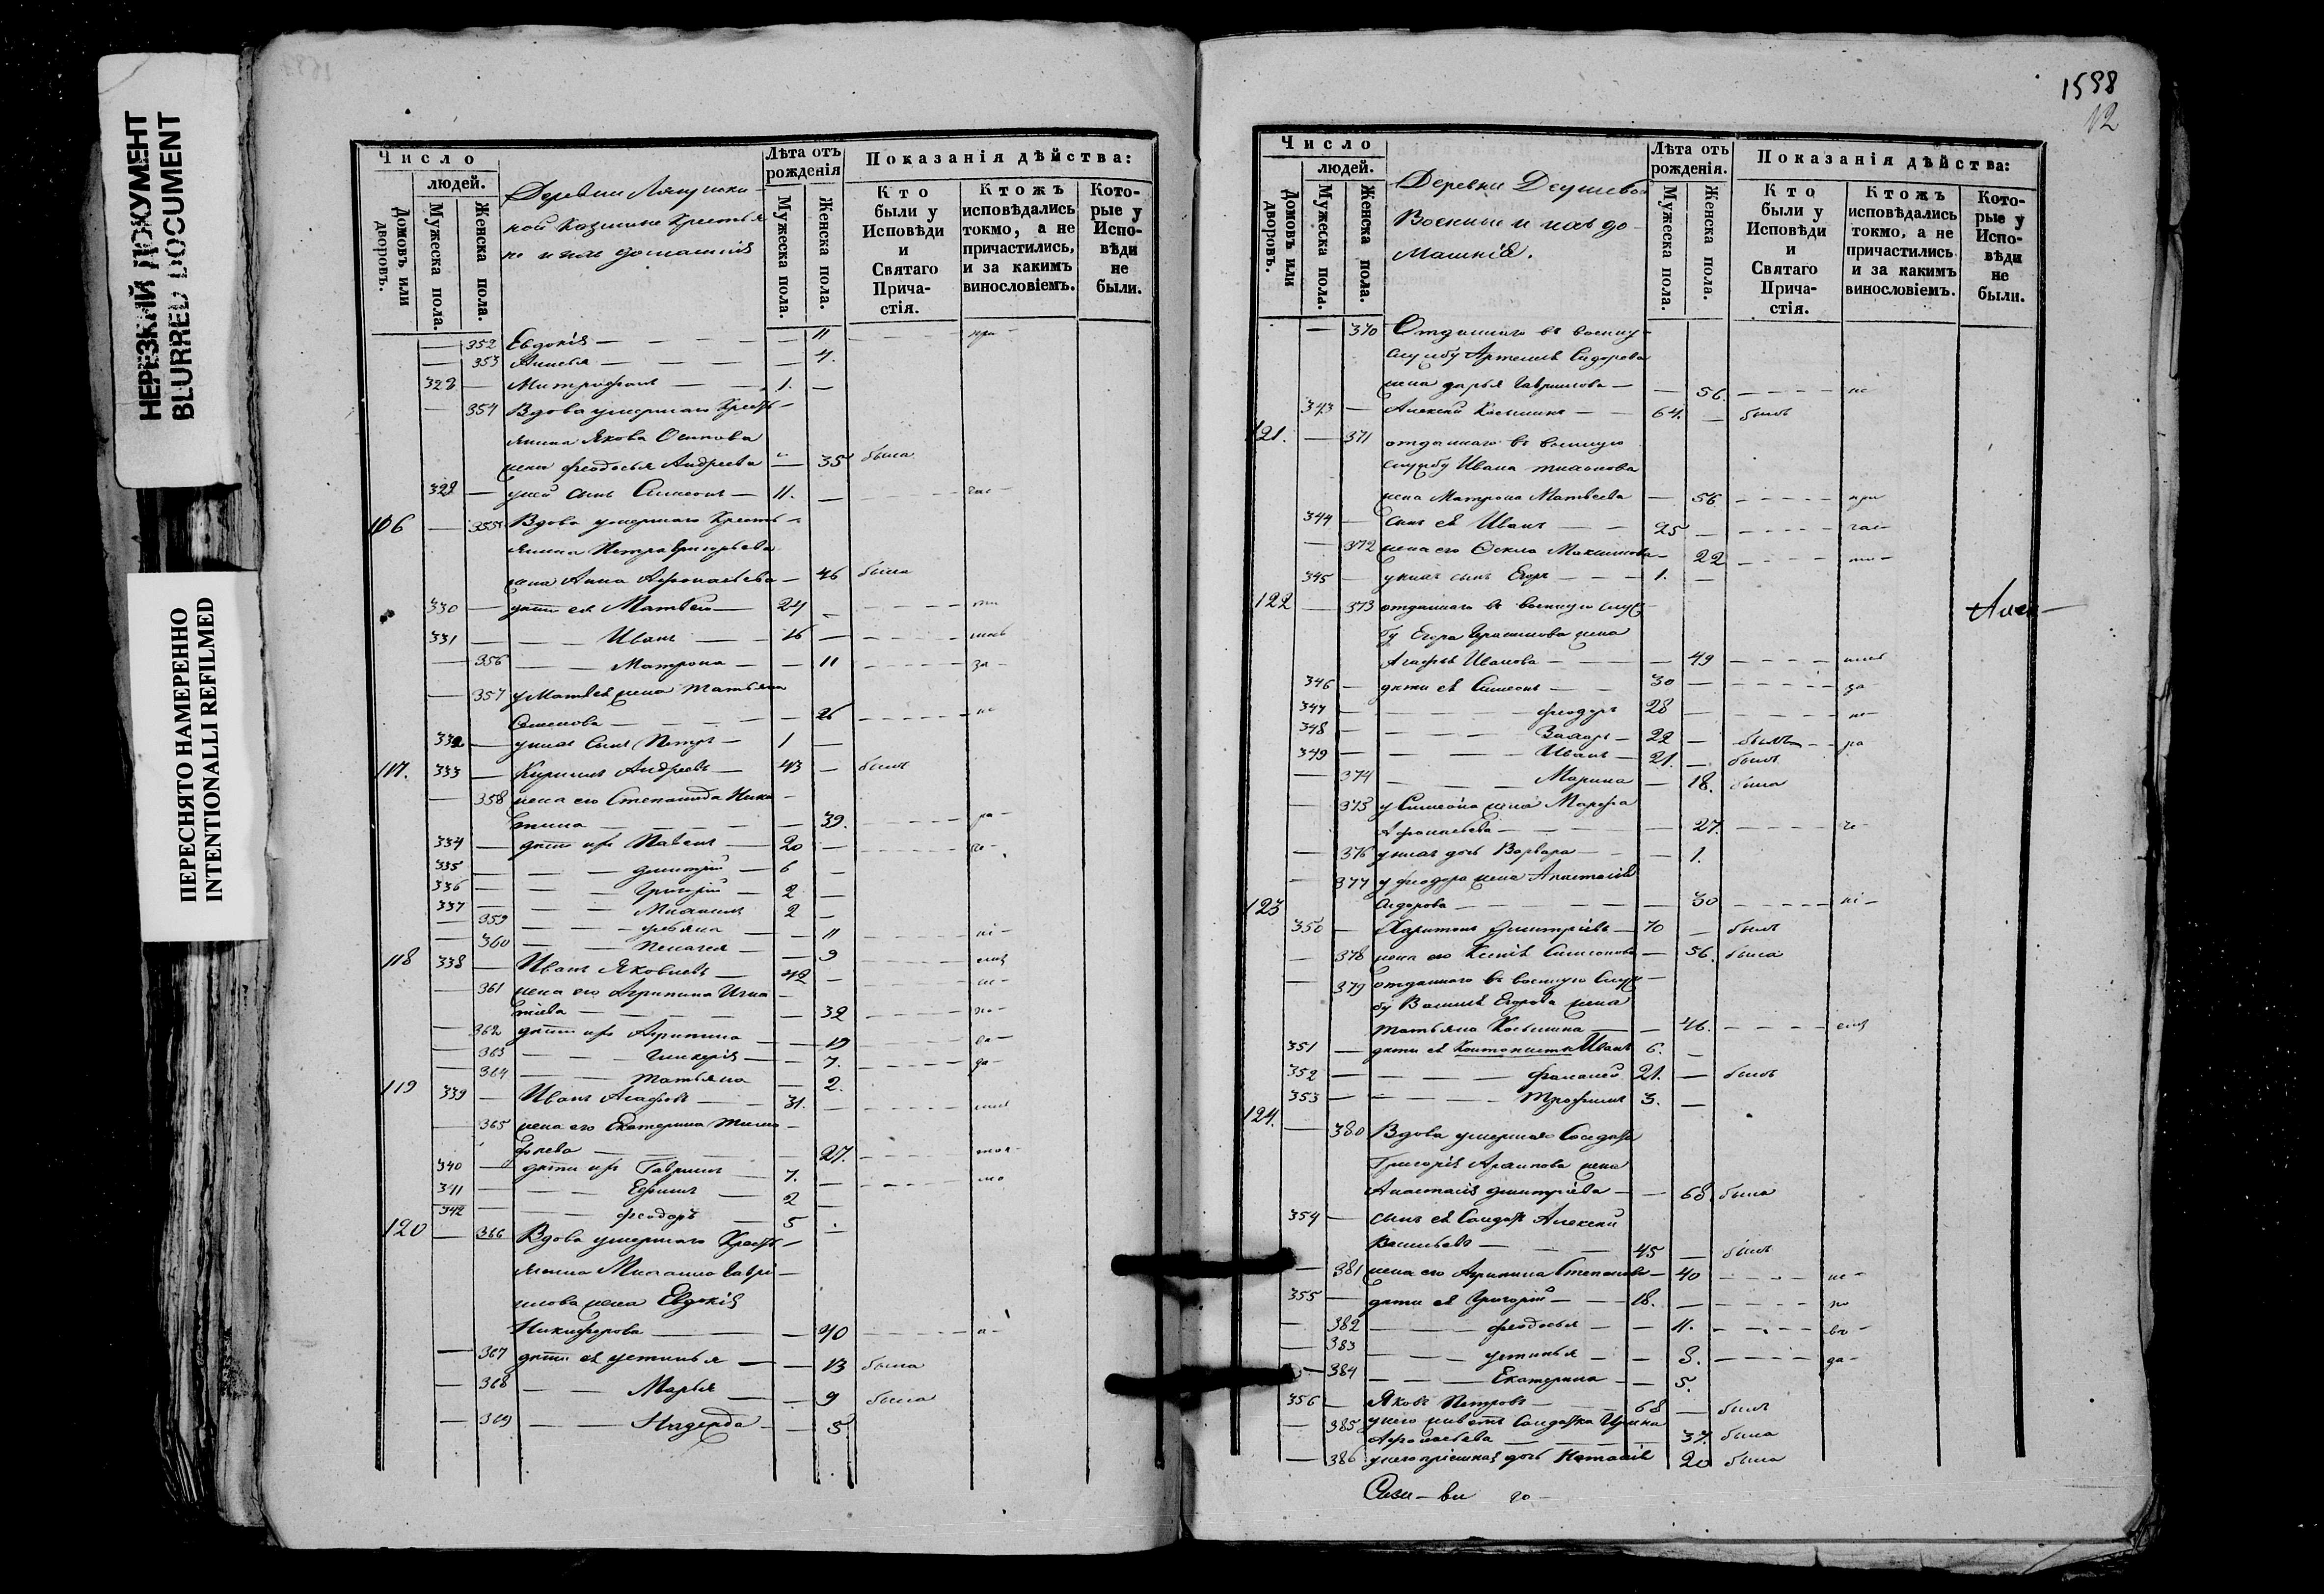 НЕРЕЗКИЙ ДОКУМЕНТ
BLURRED DOCUMENT
ПЕРЕСНЯТО НАМЕРЕННО
INTENTIONALLI REFILMED
Число
людей.
Домовъ или дворовъ.
Мужеска пола.
Женска пола.
Деревни
кой Казенные Крестья
не и ихъ домашнія
Лѣта отъ рожденія
Мужеска пола.
Женска пола.
Показанія дѣйства:
Кто были у Исповѣди и Святаго Прича-стія.
Ктожъ исповѣдались токмо, а не причастились, и за какимъ винословіемъ.
Кото-рые у Испо-вѣди не были.
352 Евдокія — — 11 при-
353 — — 4.
328 — Митрофанъ — 1. —
— 354 Вдова умершаго Кресть-
янина Якова Осипова
жена Феодосья Андреева — 35 была
329 — у ней сынъ Симеонъ — 11. —
116 — 355 Вдова умершаго Кресть-
янина Петра Григорьева
жена Анна Афонасьева — 46 была
330 — дѣти ея Матвей — 24 —
331 — Иванъ — 16 —
— 356 Матрона — 11 за-
— 357 у Матвея жена Татьяна
Семенова — 26
332 — у нихъ сынъ Петръ — 1 —
117. 333 — Кириллъ Андреевъ — 43 — былъ
— 358 жена его Степанида Ники
тина — 39.
334 — дѣти ихъ Павелъ — 20 —
335 — Димитрій — 6 —
336 — Григорій — 2 —
337 — Михаилъ 2 —
— 359 — 11
— 360 Пелагея — 9
118 338 — Иванъ Яковлевъ — 42 —
— 361 жена его Агрипина Игна
тіева — 32
— 362 дѣти ихъ Агрипина — 19
— 363 Гликерія — 7. да-
— 364 Татьяна — 2.
119 339 — Иванъ Агафовъ — 31. —
— 365 жена его Екатерина Тимо
феева — 27.
340 — дѣти ихъ Гаврилъ — 7. —
341 — Ефимъ — 2 —
342 — Феодоръ — 5 —
120 — 366 Вдова умершаго Кресть-
янина Михаила Гаври-
лова жена Евдокія
Никифорова — 40
— 367 дѣти ея Устинья — 13 была
— 368 Марья — 9 была
— 369 Надежда — 5
1598
12
Число
людей.
Домовъ или дворовъ.
Мужеска пола.
Женска пола.
Деревни
Военные и ихъ до-
машнія.
Лѣта отъ рожденія.
Мужеска пола.
Женска пола.
Показанія дѣйства:
Кто были у Исповѣди и Святаго Прича-стія.
Ктожъ исповѣдались токмо, а не причастились и за какимъ винословіемъ.
Кото-рые у Испо-вѣди не были.
— 370 Отданнаго въ военную
службу Артемья Сидорова
жена Дарья Гаврилова — 56. не
343 — Алексей Косьминъ — 64. — былъ
121. — 371 отданнаго въ военную
службу Ивана Тихонова
жена Матрона Матвеева — 56 при
344 — сынъ ея Иванъ — 25 —
— 372 жена его Фекла Максимова — 22
345 — у нихъ сынъ Егоръ — 1. —
122 — 373 отданнаго въ военную служ
бу Егора Герасимова жена
Агафья Иванова — 49
346 — дѣти ея Симеонъ — 30 — за
347 — Феодоръ 28 — не-
348 — Захаръ — 22 — былъ ра
349 — Иванъ — 21. — былъ
— 374 Марина — 18. была
— 375 у Симеона жена Марфа
Афонасьева — 27.
— 376 у нихъ дочь Варвара — 1.
— 377 у Феодора жена Анастасія
Сидорова — 30 ні-
123
350 — Харитонъ Димитріевъ — 70 — былъ
— 378 жена его Ксенія Симеонова — 56. была
— 379 отданнаго въ военную служ
бу Василья Егорова жена
Татьяна Косьмина — 46.
351 — дѣти ея Кантонисты Иванъ 6. —
352 — 21. — былъ
353 — Трофимъ 3. —
124. — 380 Вдова умершаго Солдата
Григорія Архипова жена
Анастасія Димитріева — 68 была
354 — сынъ ея Солдатъ Алексей
Васильевъ — 45 — былъ
— 381 жена его Агрипина Степанова — 40 не-
355 — дѣти ея Григорій — 18. —
— 382 Феодосья — 11.
— 383 Устинья — 8. да-
— 384 Екатерина — 5.
356 — Яковъ Петровъ — 68 — былъ
— 385 у него живетъ Солдатка Ирина
Афонасьева — 37. была
— 386 у него пріемная дочь Наталія 20 была